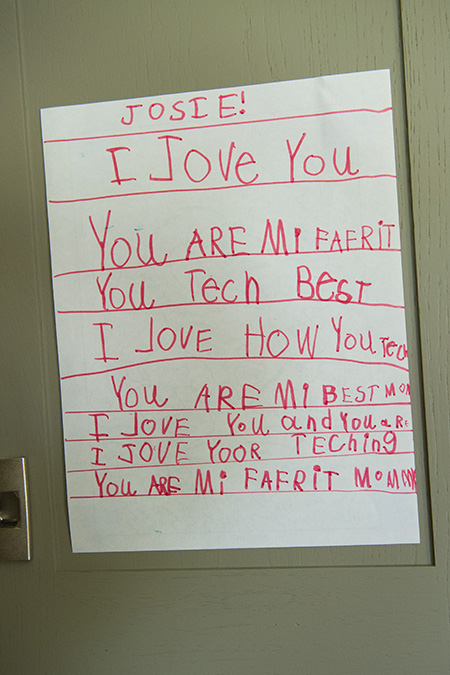 JOSIE!
I JOVE YOU
YOU ARE Mi FAERIT
YOU TECH BEST
I JOVE HOW YOU TECH
YOU ARE Mi BEST MOM
I JOVE YOU and YOU aRE
I JOVE YOOR TECHing
YOU ARE Mi FAFRIT MOMMY